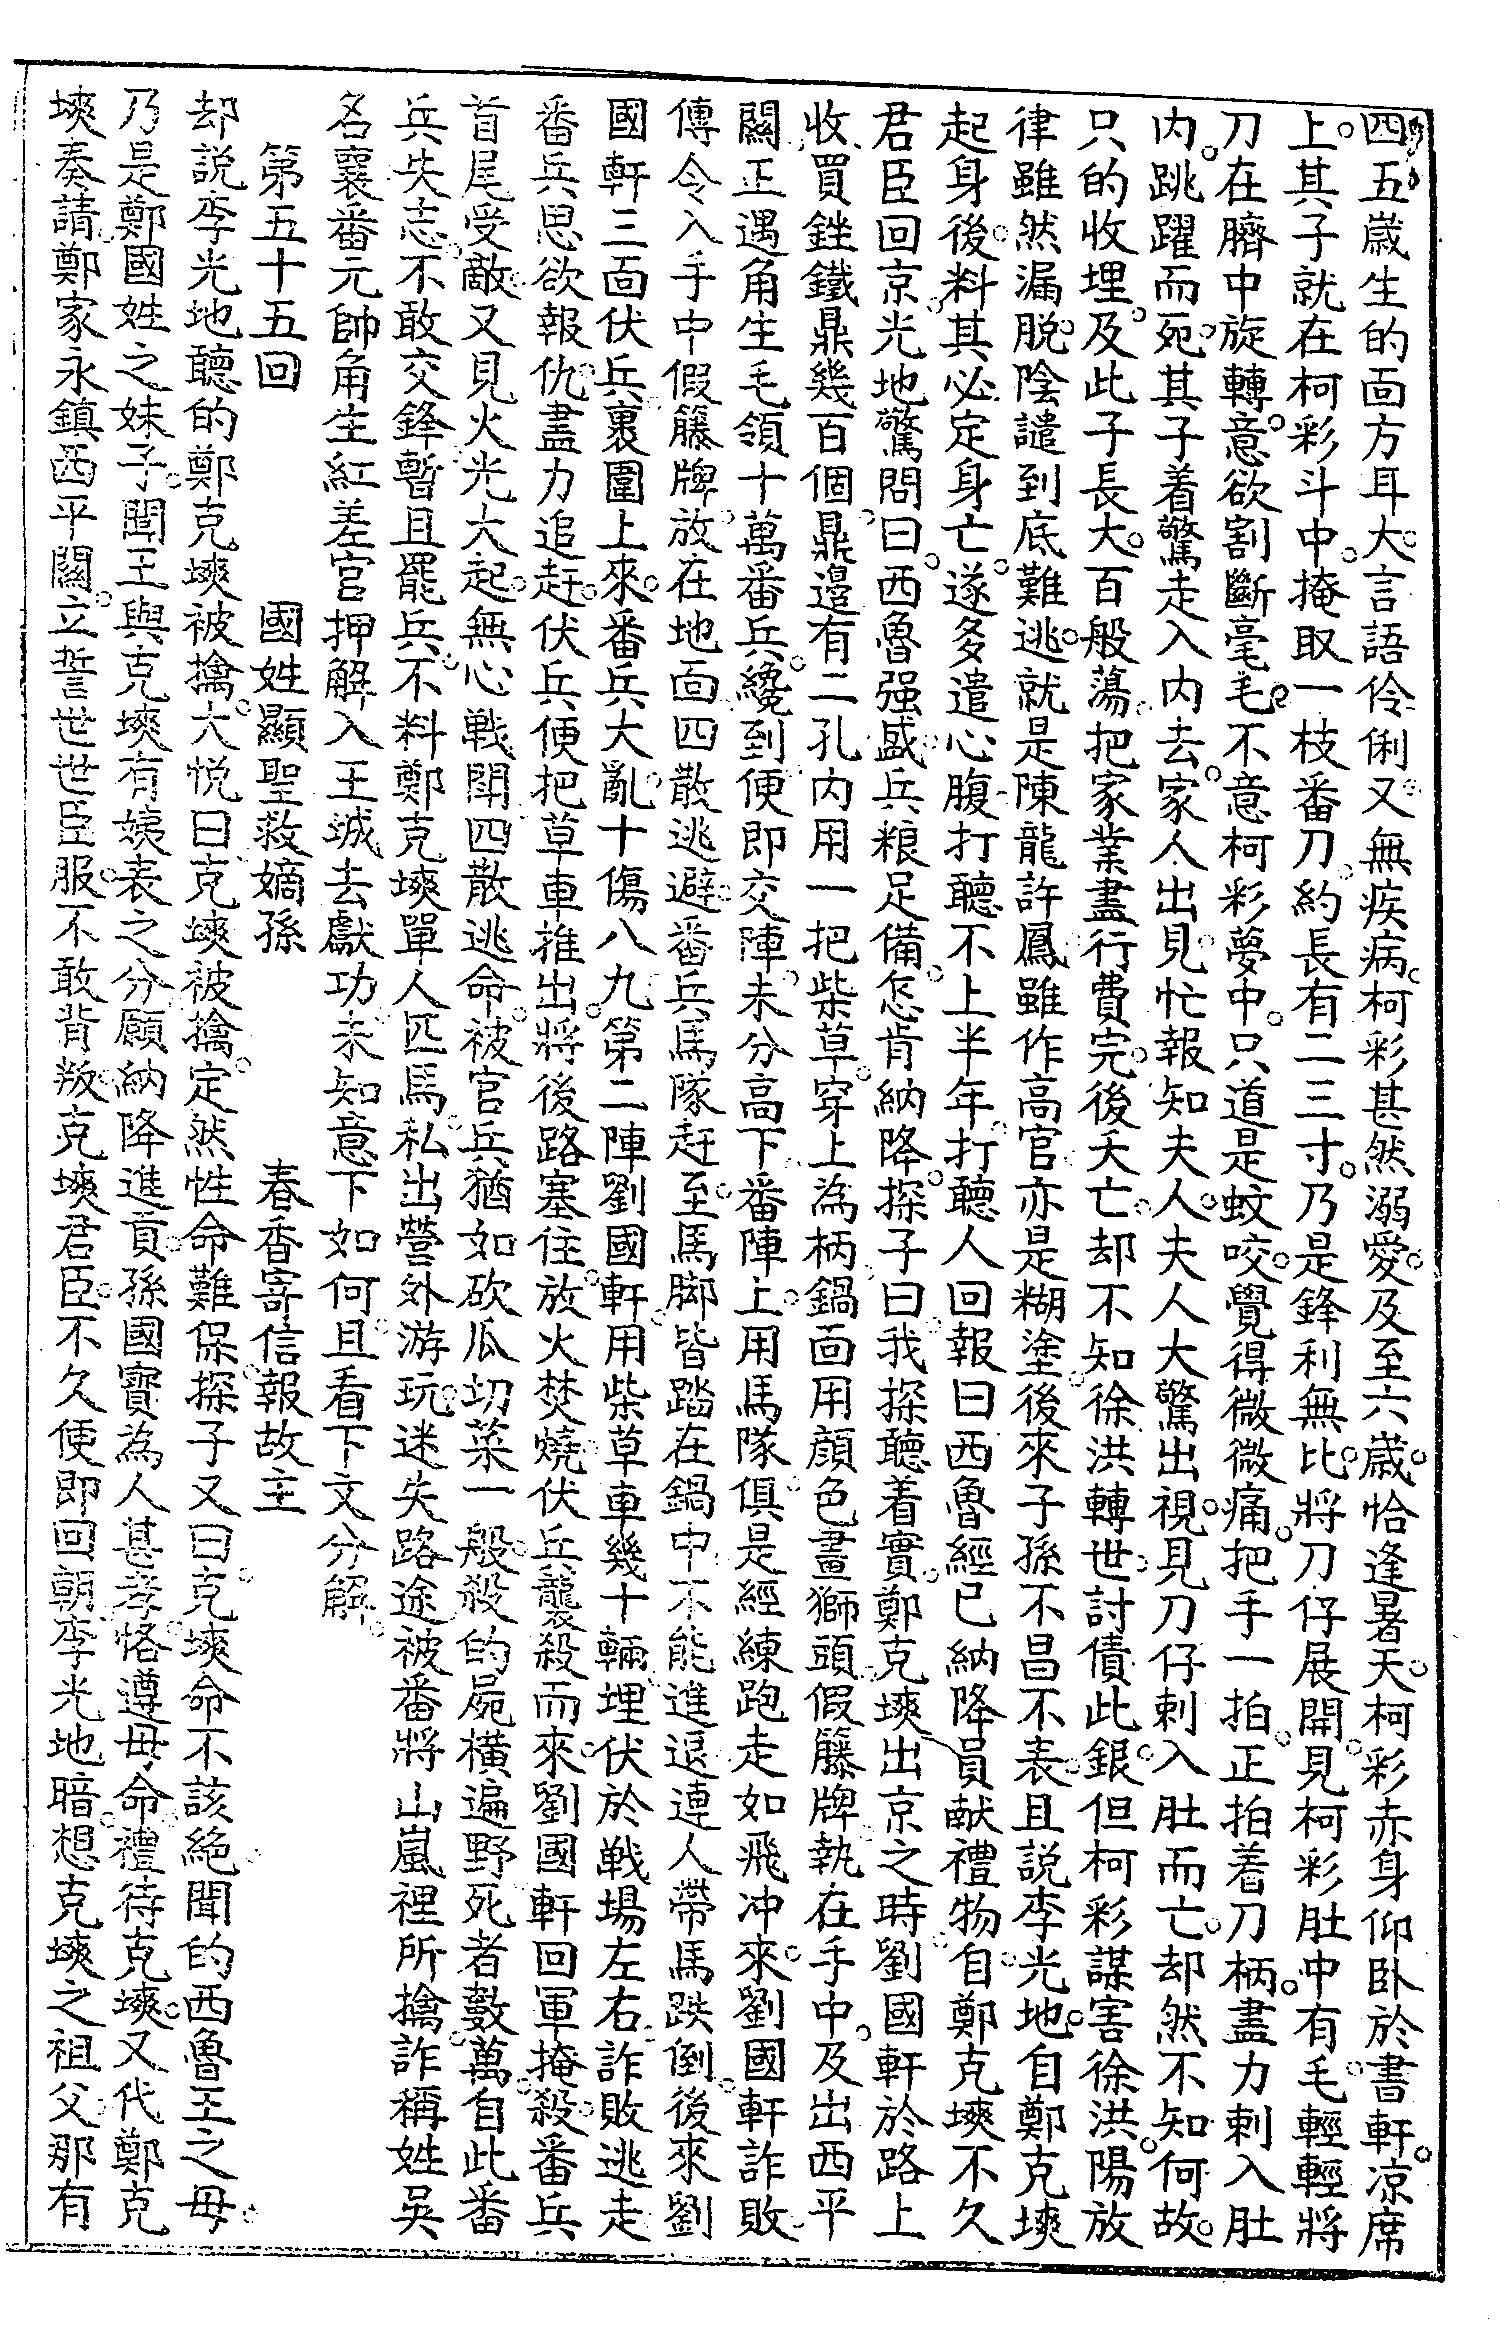 四五歲生的面方耳大。言語伶俐。又無疾病。柯彩甚然溺愛。及至六歲。恰逢暑天。柯彩赤身仰卧於書軒。凉席
上。其子就在柯彩斗中。掩取一枝番刀。約長有二三寸。乃是鋒利無比。將刀仔展開。見柯彩肚中有毛。輕輕將
刀在臍中旋轉。意欲割斷毫毛。不意柯彩夢中。只道是蚊咬。覺得微微痛。把手一拍。正拍着刀柄。盡力刺入肚
内。跳躍而死。其子着驚走入内去。家人出見。忙報知夫人。夫人大驚出視。見刀仔刺入肚而亡。却然不知何故。
只的收埋。及此子長大。百般蕩把家業盡行費完。後夭亡。却不知徐洪轉世。討債此銀。但柯彩謀害徐洪。陽放
律雖然漏脱。陰譴到底難逃。就是陳龍許鳳雖作高官。亦是糊塗。後來子孫不昌不表。且説李光地。自鄭克塽
起身後。料其必定身亡。遂多遣心腹打聽。不上半年。打聽人回報曰。西魯經已納降。員献禮物。自鄭克塽不久
君臣回京。光地驚問曰。西魯强盛。兵粮足備。怎肯納降。探子曰。我探聽着實。鄭克塽出京之時。劉國軒於路上
收買銼鐵鼎幾百個。鼎邉有二孔。内用一把柴草。穿上為柄。鍋面用顔色畫獅頭。假籐牌。執在手中。及出西平
關。正遇角生毛領十萬番兵。纔到便即交陣。未分高下。番陣上。用馬隊。俱是經練。跑走如飛冲來。劉國軒詐敗。
傳令入手中假籐牌。放在地面。四散逃避。番兵馬隊赶至。馬脚皆踏在鍋中。不能進退。連人帶馬跌倒。後來劉
國軒三面伏兵。裹圍上來。番兵大亂。十傷八九。第二陣劉國軒。用柴草車幾十輛。埋伏於戰場左右。詐敗逃走
番兵思欲報仇。盡力追赶。伏兵便把草車推出。將後路塞住。放火焚燒。伏兵襲殺而來。劉國軒回軍掩殺。番兵
首尾受敵。又見火光大起。無心戰鬪四散逃命。被官兵猶如砍瓜切菜一般。殺的屍橫遍野。死者數萬。自此番
兵失志。不敢交鋒。暫且罷兵。不料鄭克塽單人匹馬。私出營外游玩。迷失路途。被番將山嵐裡所擒。詐稱姓吴
名襄。番元帥角生紅差官押解入王城去獻功。未知意下如何。且看下文分解。
第五十五回　國姓顯聖救嫡孫　春香寄信報故主
却説李光地聽的鄭克塽被擒。大悦曰。克塽被擒。定然性命難保。探子又曰。克塽命不該絶。聞的西魯王之母。
乃是鄭國姓之妹子。聞王與克塽有姨表之分。願納降進貢。孫國寶為人甚孝。恪遵母命。禮待克塽。又代鄭克
塽奏請。鄭家永鎮西平關。立誓世世臣服。不敢背叛。克塽君臣。不久便即回朝。李光地暗想。克塽之祖父那有